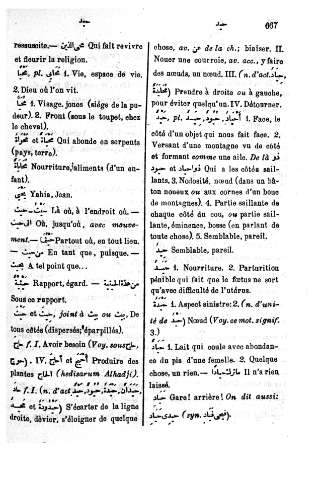 حيد
667
ressuscite.— محيى الدين Qui fait revivre
et fleurir la religion.
pl. محاى 1. Vie, espace de vie.
2. Dieu où l'on vit.
1. Visage, joues (siége de la pu-
deur). 2. Front (sous le toupet, chez
le cheval).
et محواة Qui abonde en serpents
(pays, terre).
Nourriture, aliments (d'un en-
fant).
Yahia, Jean.
حيث Là où, à l'endroit où. —
الى حيث Où, jusqu'où, avec mouve-
ment.— Partout où, en tout lieu.
— من حيث En tant que, puisque. —
بحيث A tel point que...
Rapport, égard. — من هذه الحيثية
Sous ce rapport.
joint à بيث ou بيث. De
tous côtés (dispersés, éparpillés).
f. I. Avoir besoin (Voy. sous
حوج). IV. et Produire des
plantes حاج (hedisarum Alhadji).
حاد f. I. (n. d'act.
et حيدودة) S'écarter de la ligne
droite, dévier, s'éloigner de quelque
chose, av. عن de la ch.; biaiser. II.
Nouer une courroie, av. acc., y faire
des nœuds, un nœud. III. (n. d'act.
) Prendre à droite ou à gauche,
pour éviter quelqu'un. IV. Détourner.
حيد, pl. 1. Face, le
côté d'un objet qui nous fait face. 2.
Versant d'une montagne vu de côté
et formant comme une aile. De là ذو
حيود et ذو احياد Qui a les côtés sail-
lants. 3. Nodosité, nœud (dans un bâ-
ton noueux ou aux cornes d'un bouc
de montagnes). 4. Partie saillante de
chaque côté du cou, ou partie sail-
lante, éminence, bosse (en parlant de
toute chose). 5. Semblable, pareil.
Semblable, pareil.
1. Nourriture. 2. Parturition
pénible qui fait que le fœtus ne sort
qu'avec difficulté de l'utérus.
1. Aspect sinistre: 2. (n. d'uni-
té de حيد) Nœud (Voy. ce mot. signif.
3.)
1. Lait qui coule avec abondan-
ce du pis d'une femelle. 2. Quelque
chose, un rien. — Il n'a rien
laissé.
Gare! arrière! On dit aussi:
حيدى حياد (syn. فيحى فياح).